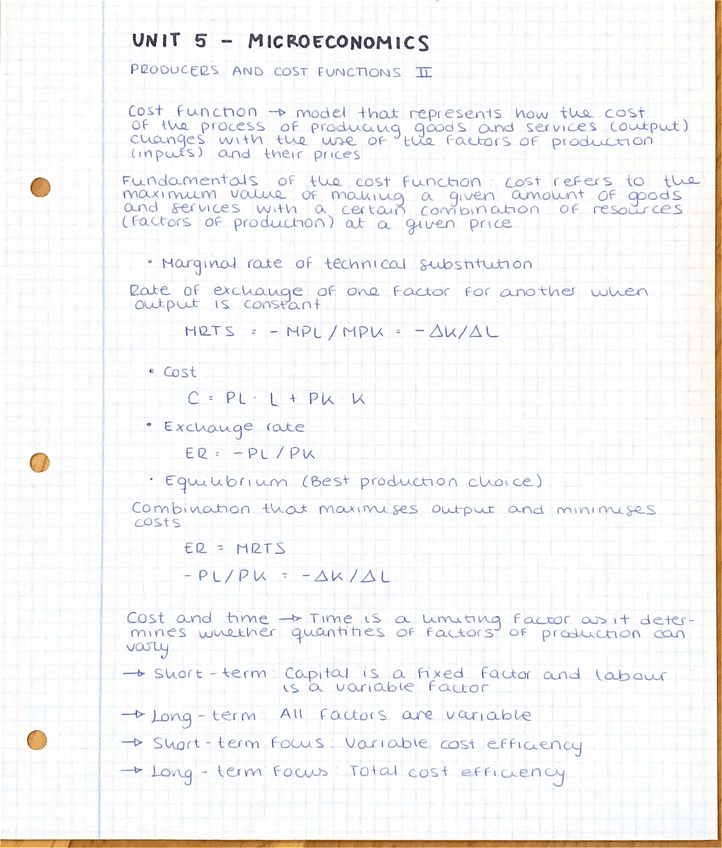 UNIT 5 - MICROECONOMICS
PRODUCERS AND COST FUNCTIONS II
Cost function → model that represents how the cost
of the process of producing goods and services (output)
changes with the use of the factors of production
(inputs) and their prices
Fundamentals of the cost function: cost refers to the
maximum value of making a given amount of goods
and services with a certain combination of resources
(factors of production) at a given price
• Marginal rate of technical substitution
Rate of exchange of one factor for another when
output is constant
MRTS = - MPL / MPK = - ΔK/ΔL
• Cost
C = PL · L + PK · K
• Exchange rate
ER = -PL / PK
• Equilibrium (Best production choice)
Combination that maximises output and minimises
costs
ER = MRTS
- PL/PK = - ΔK/ΔL
Cost and time → Time is a limiting factor as it deter-
mines whether quantities of factors of production can
vary
→ Short-term: Capital is a fixed factor and labour
is a variable factor
→ Long-term: All factors are variable
→ Short-term focus: Variable cost efficiency
→ Long-term focus: Total cost efficiency